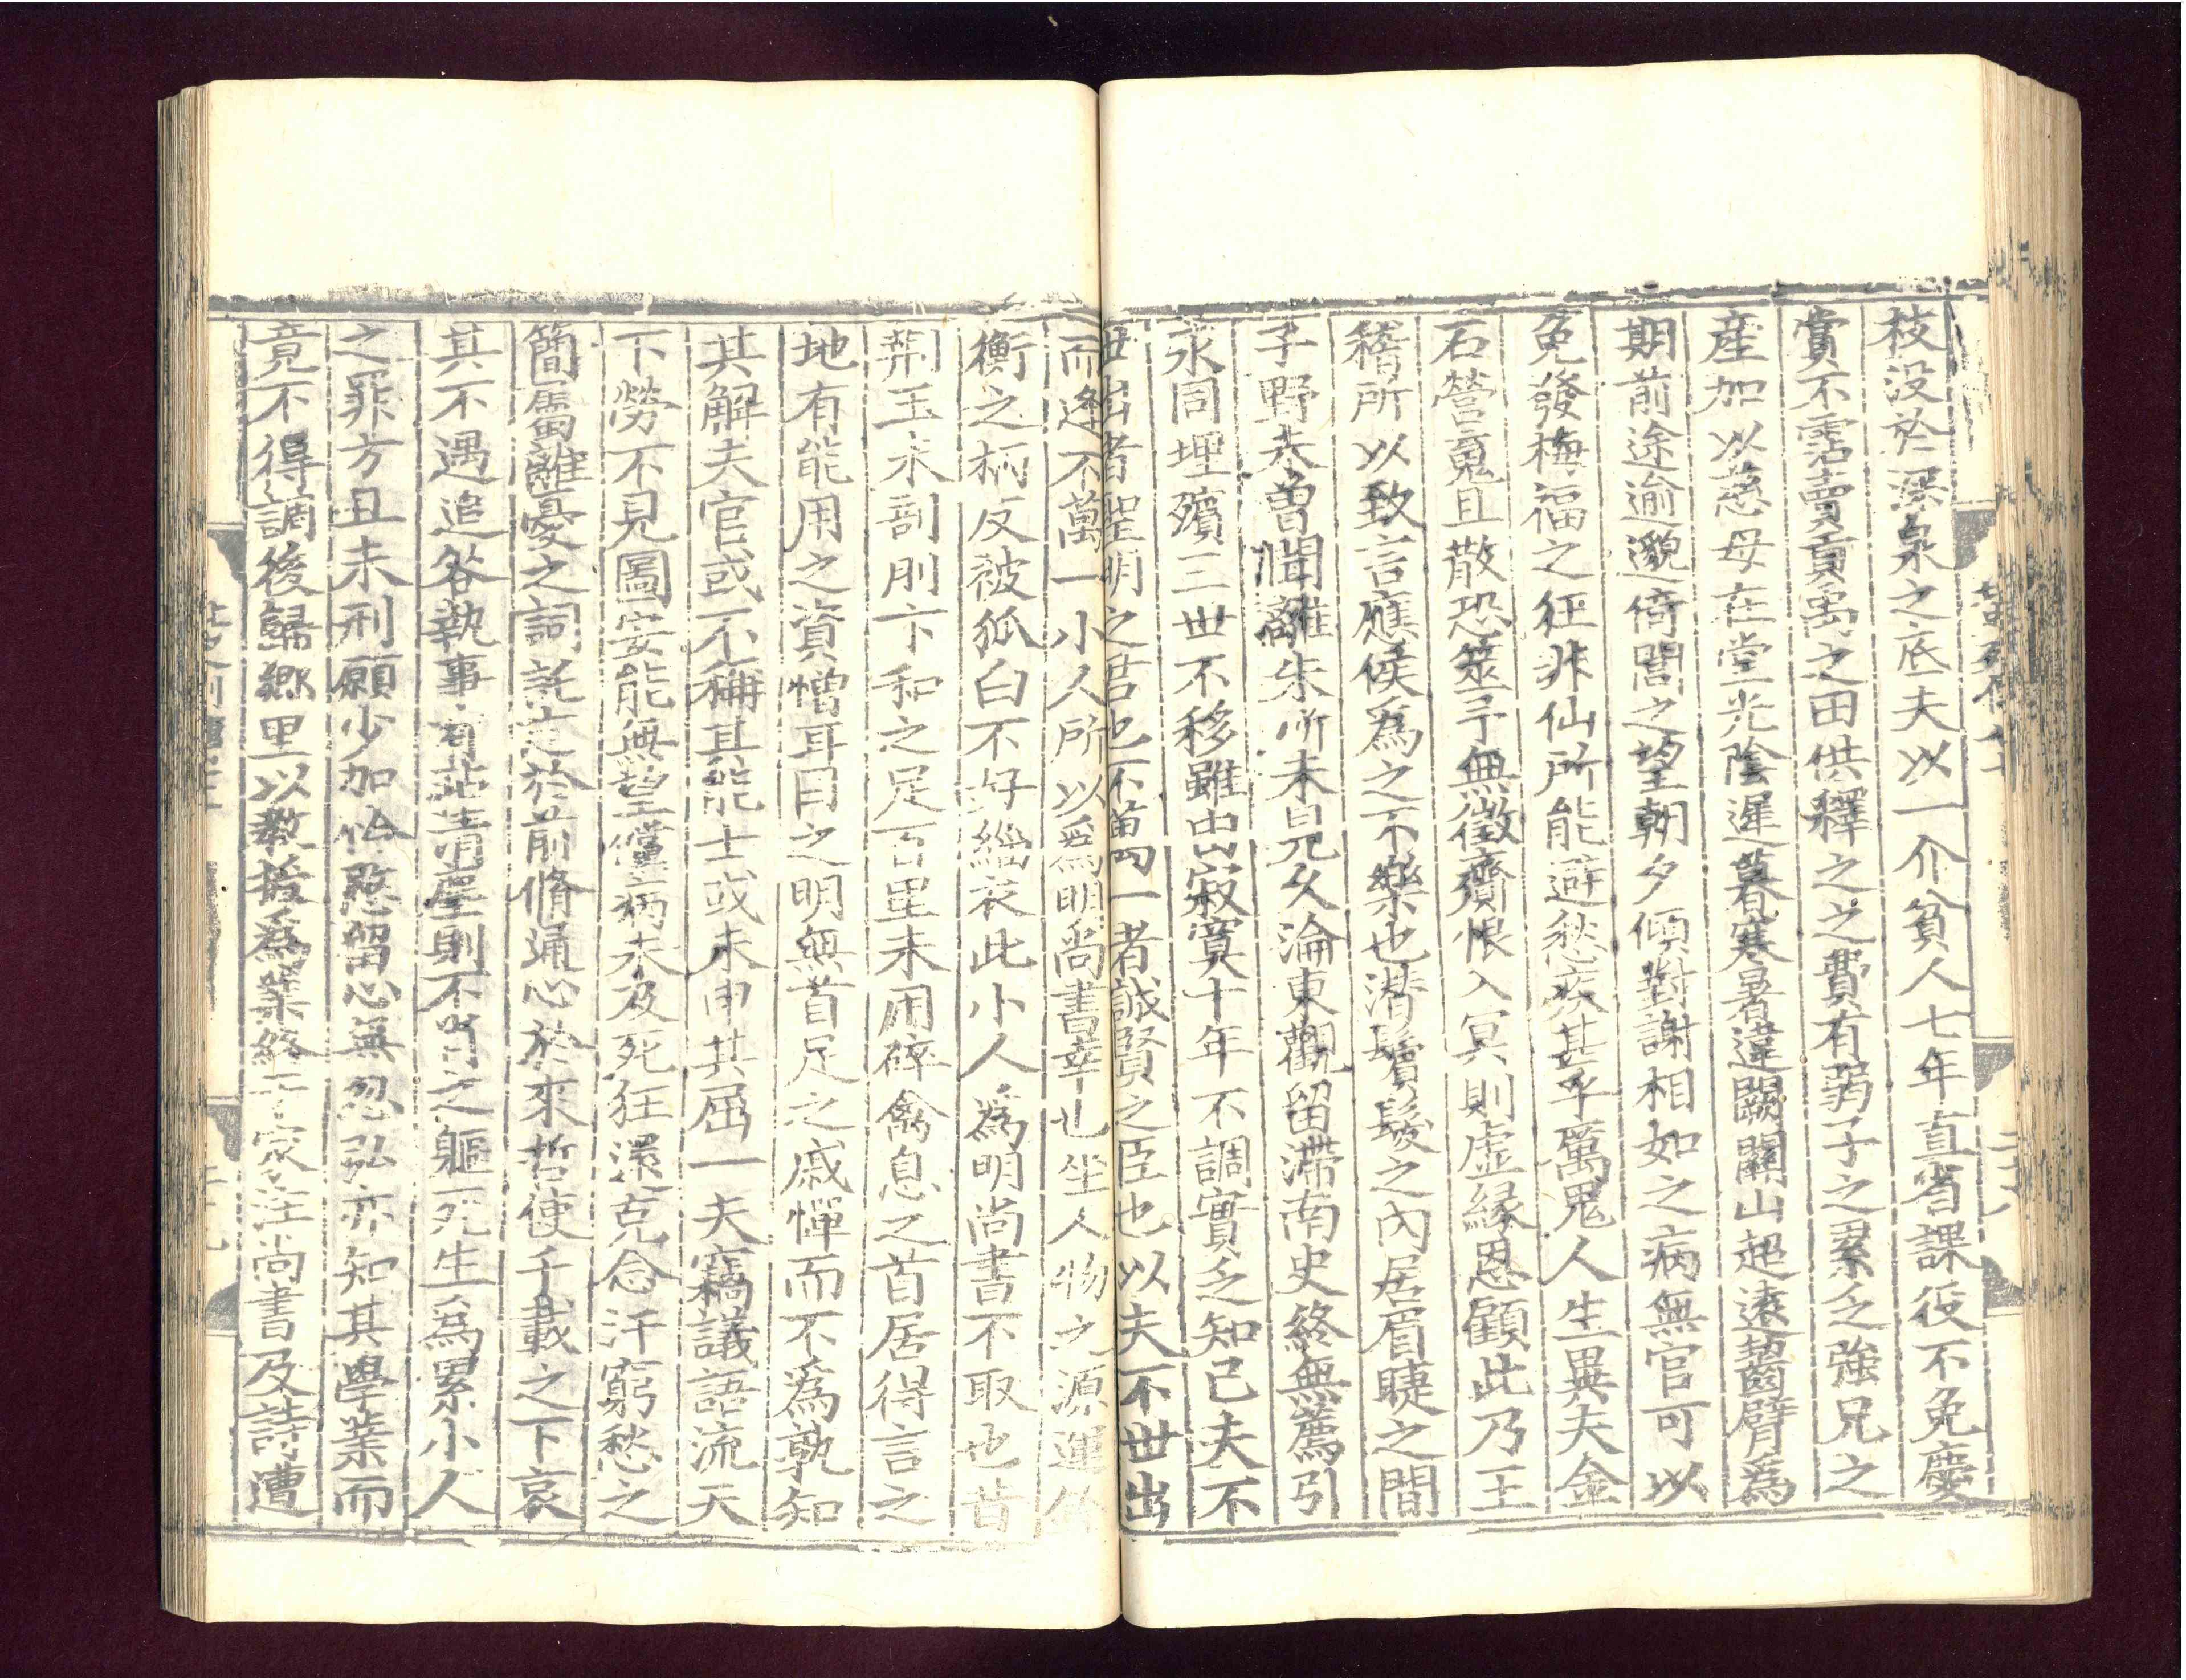 枝沒於深泉之底夫以一介貧人七年直省課役不免慶
賞不霑賣貢禹之田供釋之之費有弱子之累乏強兄之
產加以慈母在堂光陰遲暮寒暑違闕關山超遠齧臂爲
期前途逾邈倚閭之望朝夕傾對謝相如之病無官可以
免發梅福之狂非仙所能避愁疾甚乎厲鬼人生異夫金
石營䰟且散恐筮予無徵齎恨入冥則虛緣恩顧此乃王
稽所以致言應侯爲之不樂也潜鬢髮之內居眉睫之間
子野未曾聞離朱所未見久淪東觀留滯南史終無薦引
永同埋殯三世不移雖由寂寞十年不調實乏知己夫不
世出者聖明之君也不萬一者誠賢之臣也以夫不世出
而逢不萬一小人所以爲明尚書幸也坐人物之源運銓
衡之柄反被狐白不好緇衣此小人爲明尚書不取也昔
荆玉未剖刖卞和之足百里未用碎禽息之首居得言之
地有能用之資憎耳目之明無首足之戚憚而不爲孰知
其解夫官或不稱其能士或未申其屈一夫竊議語流天
下勞不見圖安能無望儻病未及死狂還克念汗窮愁之
簡屬離憂之詞託志於前脩通心於來哲使千載之下哀
其不遇追咎執事有玷清塵則不肖之軀死生爲累小人
之罪方且未刊願少加怜愍留心無忽弘亦知其學業而
竟不得調後歸鄉里以教授爲業終于家注尚書及詩遭